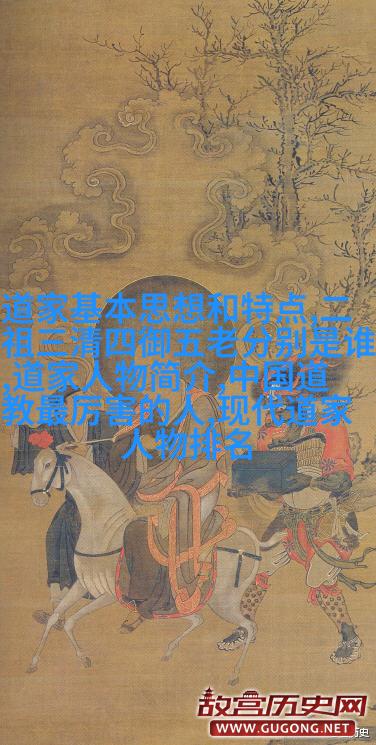 道家基本思想和特点,二
祖三清四御五老分别是谁
,道家人物简介,中国道
教最厉害的人,现代道家
人物排名
故宫历史网
WWW.GUGONG.NET
历史